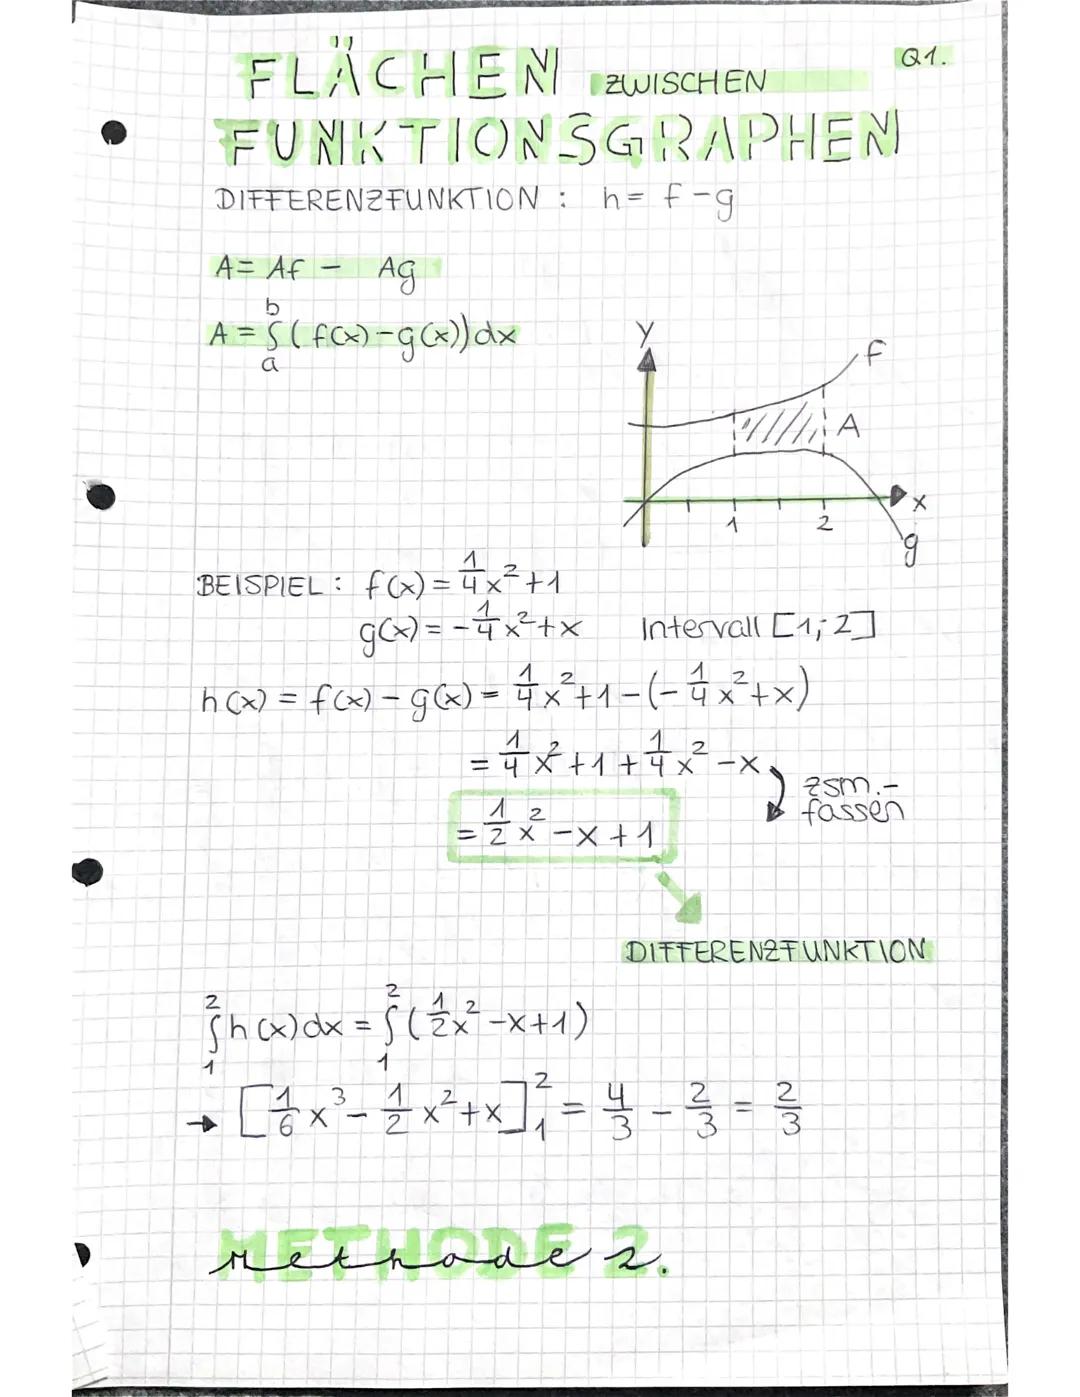 Q1.
FLÄCHEN ZWISCHEN
FUNKTIONSGRAPHEN
DIFFERENZFUNKTION : h = f - g
A = Af - Ag
A = ∫_a^b (f(x) - g(x)) dx
y
f
A
x
1 2
g
BEISPIEL : f(x) = 1/4 x² + 1
g(x) = - 1/4 x² + x Intervall [1; 2]
h(x) = f(x) - g(x) = 1/4 x² + 1 - (- 1/4 x² + x)
= 1/4 x² + 1 + 1/4 x² - x
zsm.-
fassen
= 1/2 x² - x + 1
DIFFERENZFUNKTION
∫_1^2 h(x) dx = ∫_1^2 (1/2 x² - x + 1)
→ [1/6 x³ - 1/2 x² + x]_1^2 = 4/3 - 2/3 = 2/3
METHODE
Methode 2.